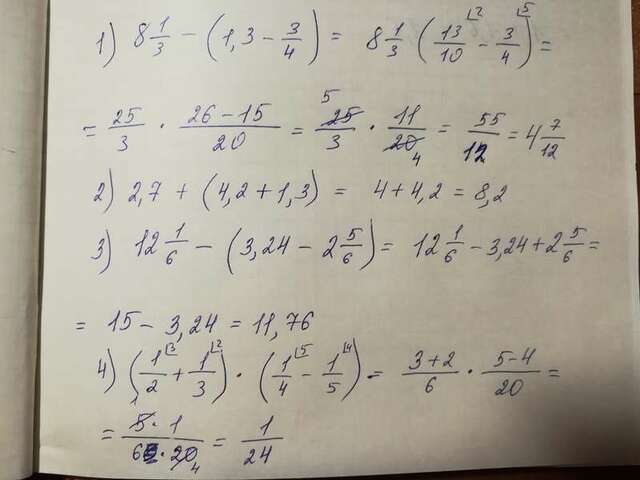 1) 8 1/3 - (1,3 - 3/4) = 8 1/3 (13/10 ⌊2 - 3/4 ⌊5) =
= 25/3 · (26 - 15)/20 = 25/3 5 · 11/20 4 = 55/12 = 4 7/12
2) 2,7 + (4,2 + 1,3) = 4 + 4,2 = 8,2
3) 12 1/6 - (3,24 - 2 5/6) = 12 1/6 - 3,24 + 2 5/6 =
= 15 - 3,24 = 11,76
4) (1/2 ⌊3 + 1/3 ⌊2) · (1/4 ⌊5 - 1/5 ⌊4) = (3+2)/6 · (5-4)/20 =
= (1 5 · 1)/(6 · 20 4) = 1/24